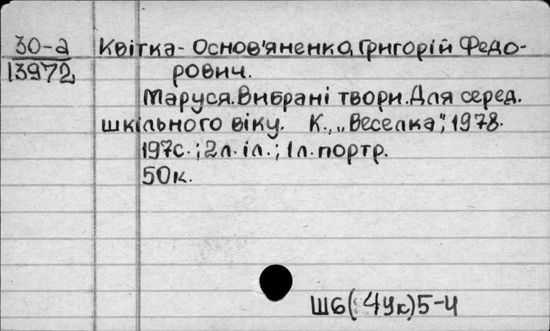 30-а Квітка-Основ'яненко, Григорій Федо-
13972 рович.
Маруся. Вибрані твори. Для серед.
шкільного віку. К., „Веселка", 1978.
197с.; 2л. іл.; 1л. портр.
50к.
Ш6(4Ук)5-4